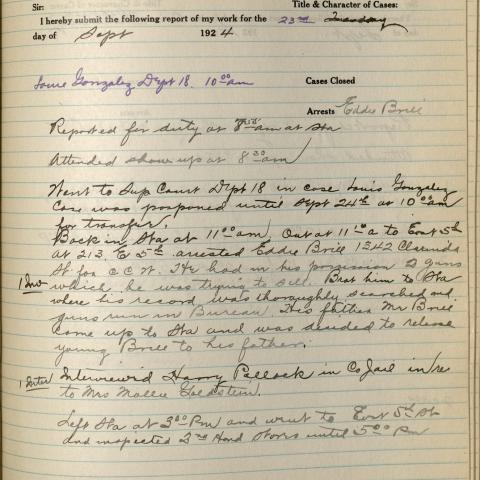 Sir:
Title & Character of Cases:
I hereby submit the following report of my work for the 23rd Tuesday
day of Sept 1924
Louis Gonzalez Dept 18. 10 00 am
Cases Closed
Arrests Eddie Brill
Reported for duty at 8 am at Sta
Attended show up at 8 30 am
Went to Sup Court Dept 18 in case Louis Gonzalez
Case was postponed until Sept 24th at 10 00 am
for transfer.
Back in Sta at 11 00 am. Out at 11 a to East 5th
at 213 E 5th arrested Eddie Brill 1342
St for C C W. He had in his possession 2 guns
1 Inv which he was trying to sell. him to Sta
where his record was thoroughly searched and
guns run in Bureau. His father Mr Brill
come up to Sta and was decided to release
young Brill to his father.
1 Inter Interviewed Harry Pollock in Co Jail in/re
to Mrs Mollie Goldstein.
Left Sta at 3 00 Pm and went to East 5th St
and inspected 2nd Hand Stores until 5 00 Pm